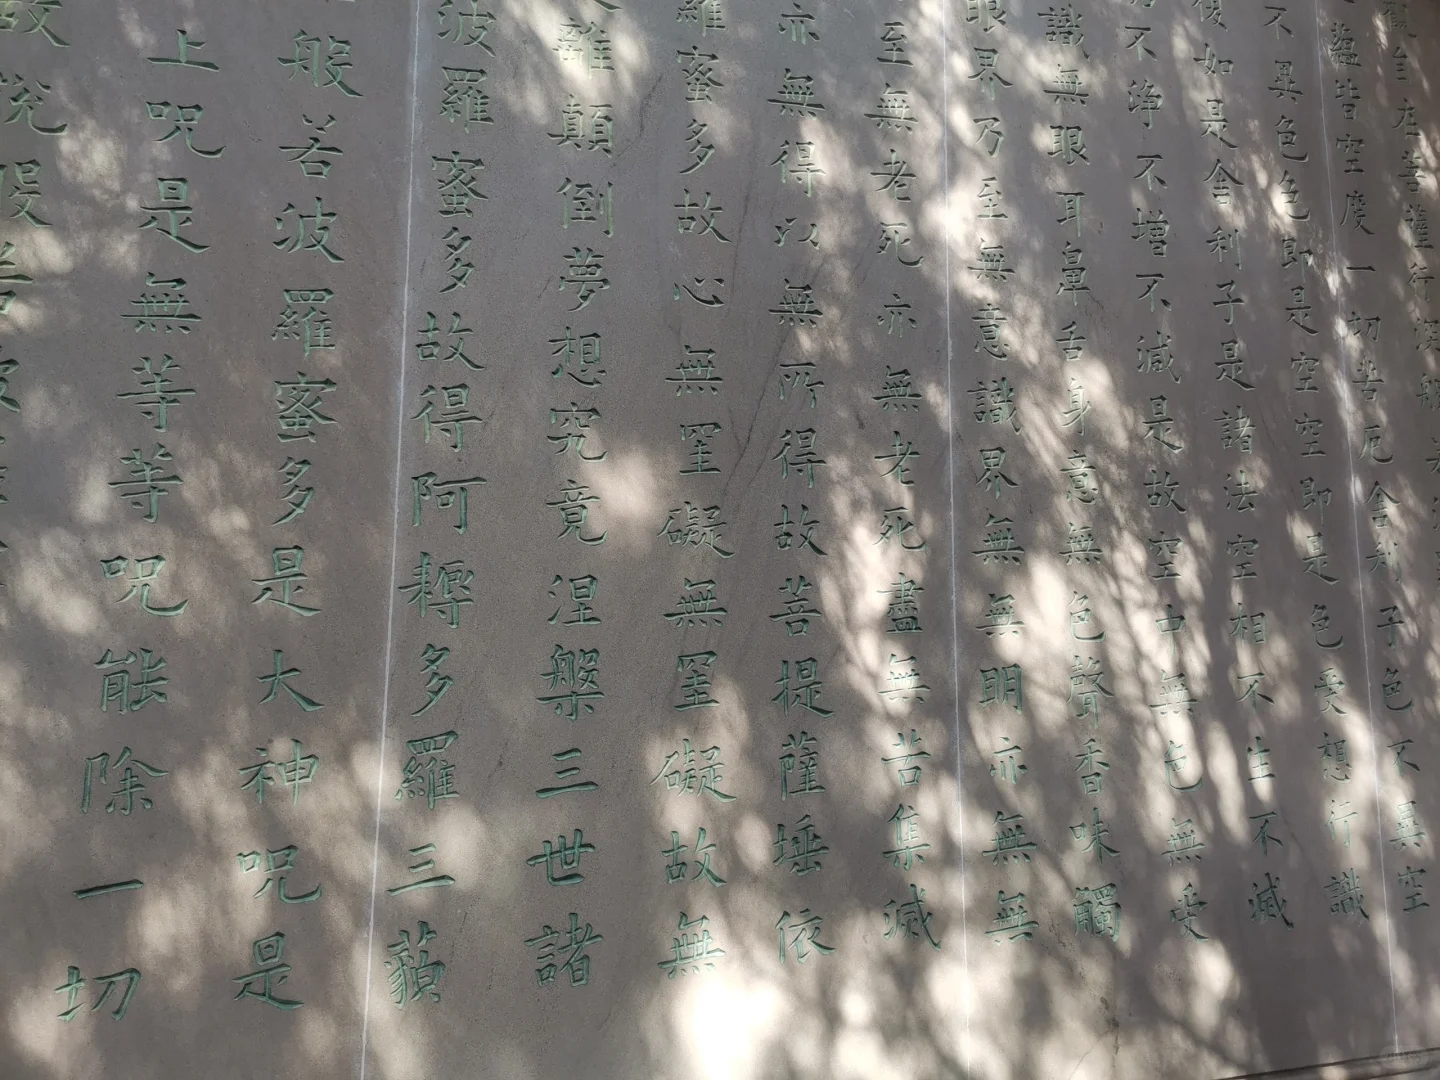 自在菩薩行深般
蘊皆空度一切苦厄舍利子色不異空
不異色色即是空空即是色受想行識
復如是舍利子是諸法空相不生不滅
不浄不增不減是故空中無色無受
識無眼耳鼻舌身意無色聲香味觸
眼界乃至無意識界無無明亦無無
至無老死亦無老死盡無苦集滅
亦無得以無所得故菩提薩埵依
羅蜜多故心無罣礙無罣礙故無
離顛倒夢想究竟涅槃三世諸
波羅蜜多故得阿耨多羅三藐
般若波羅蜜多是大神咒是
上咒是無等等咒能除一切
故說般若波